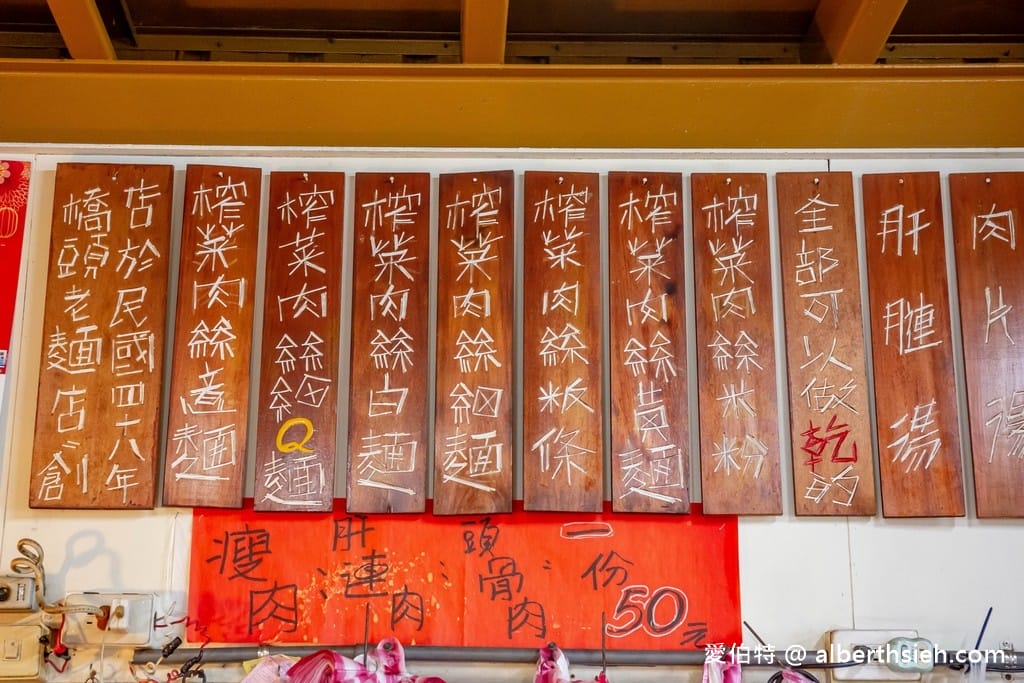 橋頭老麵店創
店於民國四十八年
榨菜肉絲意麵
榨菜肉絲細Q麵
榨菜肉絲白麵
榨菜肉絲細麵
榨菜肉絲粄條
榨菜肉絲黃麵
榨菜肉絲米粉
全部可以做乾的
肝膽湯
肉片湯
瘦肉、肝連肉、頭骨肉、一份50元
愛伯特 @ alberthsieh.com